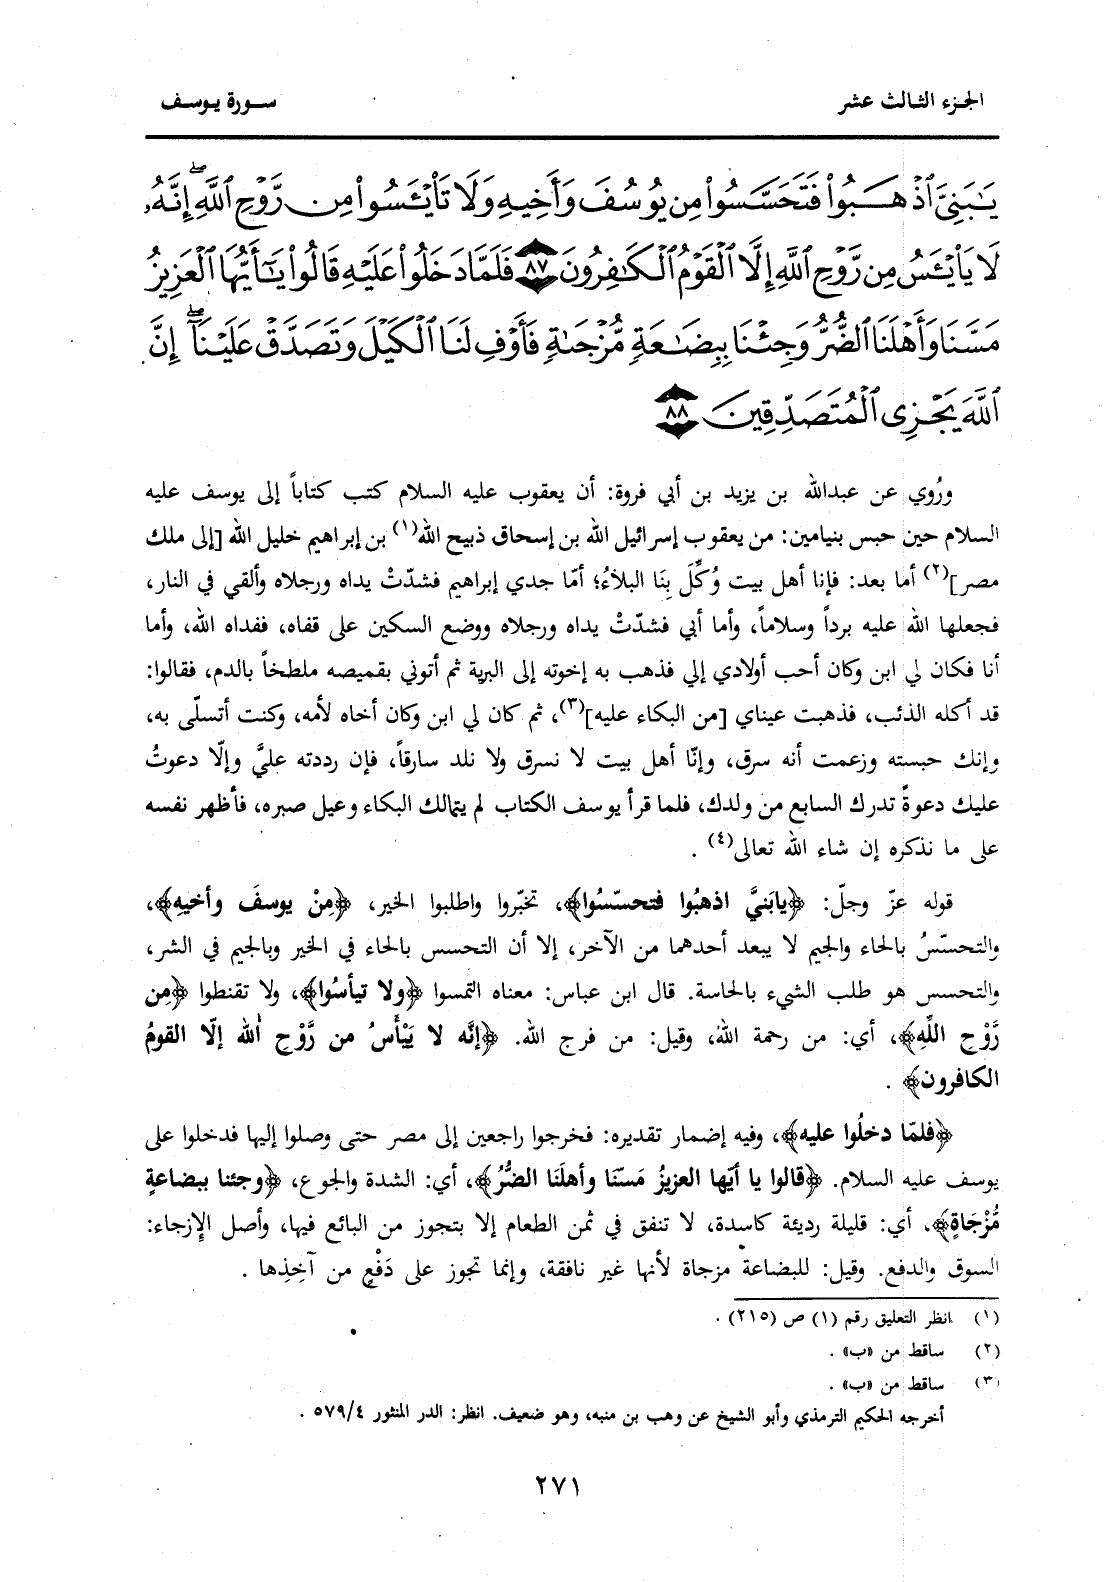 الجزء الثالث عشر
سورة يوسف
يَٰبَنِىَّ ٱذْهَبُوا۟ فَتَحَسَّسُوا۟ مِن يُوسُفَ وَأَخِيهِ وَلَا تَا۟يْـَٔسُوا۟ مِن رَّوْحِ ٱللَّهِ ۖ إِنَّهُۥ
لَا يَا۟يْـَٔسُ مِن رَّوْحِ ٱللَّهِ إِلَّا ٱلْقَوْمُ ٱلْكَٰفِرُونَ ٨٧ فَلَمَّا دَخَلُوا۟ عَلَيْهِ قَالُوا۟ يَٰٓأَيُّهَا ٱلْعَزِيزُ
مَسَّنَا وَأَهْلَنَا ٱلضُّرُّ وَجِئْنَا بِبِضَٰعَةٍ مُّزْجَىٰةٍ فَأَوْفِ لَنَا ٱلْكَيْلَ وَتَصَدَّقْ عَلَيْنَآ ۖ إِنَّ
ٱللَّهَ يَجْزِى ٱلْمُتَصَدِّقِينَ ٨٨
ورُوي عن عبدالله بن يزيد بن أبي فروة: أن يعقوب عليه السلام كتب كتاباً إلى يوسف عليه
السلام حين حبس بنيامين: من يعقوب إسرائيل الله بن إسحاق ذبيح الله(١) بن إبراهيم خليل الله [إلى ملك
مصر](٢) أما بعد: فإنا أهل بيت وُكِّلَ بِنَا البلاءُ؛ أمّا جدي إبراهيم فشدّتْ يداه ورجلاه وألقي في النار،
فجعلها الله عليه برداً وسلاماً، وأما أبي فشدّتْ يداه ورجلاه ووضع السكين على قفاه، ففداه الله، وأما
أنا فكان لي ابن وكان أحب أولادي إلي فذهب به إخوته إلى البرية ثم أتوني بقميصه ملطخاً بالدم، فقالوا:
قد أكله الذئب، فذهبت عيناي [من البكاء عليه](٣)، ثم كان لي ابن وكان أخاه لأمه، وكنت أتسلّى به،
وإنك حبسته وزعمت أنه سرق، وإنّا أهل بيت لا نسرق ولا نلد سارقاً، فإن رددته عليَّ وإلّا دعوتُ
عليك دعوةً تدرك السابع من ولدك، فلما قرأ يوسف الكتاب لم يتمالك البكاء وعيل صبره، فأظهر نفسه
على ما نذكره إن شاء الله تعالى(٤) .
قوله عزّ وجلّ: ﴿يابَنيَّ اذهبُوا فتحسّسُوا﴾، تخبّروا واطلبوا الخير، ﴿مِنْ يوسفَ وأخيهِ﴾،
والتحسّسُ بالحاء والجيم لا يبعد أحدهما من الآخر، إلا أن التحسس بالحاء في الخير وبالجيم في الشر،
والتحسس هو طلب الشيء بالحاسة. قال ابن عباس: معناه التمسوا ﴿ولا تيأسُوا﴾، ولا تقنطوا ﴿مِن
رَّوْحِ اللّهِ﴾، أي: من رحمة الله، وقيل: من فرج الله. ﴿إنَّه لا يَيْأَسُ من رَّوْحِ الله إلّا القومُ
الكافرون﴾ .
﴿فلمّا دخلُوا عليه﴾، وفيه إضمار تقديره: فخرجوا راجعين إلى مصر حتى وصلوا إليها فدخلوا على
يوسف عليه السلام. ﴿قالوا يا أيّها العزيزُ مَسّنَا وأهلَنَا الضُّرُّ﴾، أي: الشدة والجوع، ﴿وجئنا ببضاعةٍ
مُّزْجَاةٍ﴾، أي: قليلة رديئة كاسدة، لا تنفق في ثمن الطعام إلا بتجوز من البائع فيها، وأصل الإزجاء:
السوق والدفع. وقيل: للبضاعة مزجاة لأنها غير نافقة، وإنما تجوز على دَفْعٍ من آخِذِها .
(١) انظر التعليق رقم (١) ص (٢١٥) .
(٢) ساقط من «ب» .
(٣) ساقط من «ب» .
أخرجه الحكيم الترمذي وأبو الشيخ عن وهب بن منبه، وهو ضعيف. انظر: الدر المنثور ٥٧٩/٤ .
٢٧١